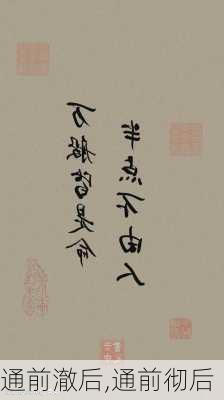 万般皆是命
半点不由人
通前澈后,通前彻后